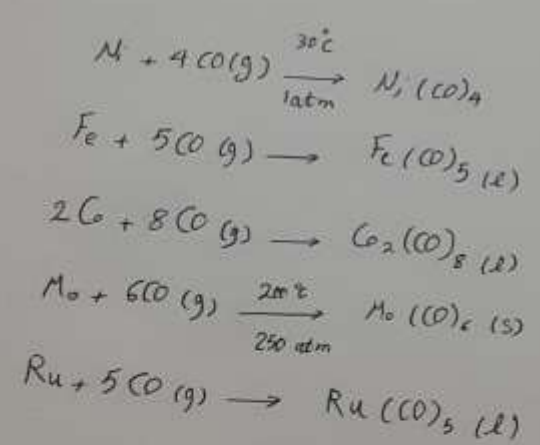 Ni + 4CO(g) 30°C → 1atm Ni(CO)4
Fe + 5CO(g) → Fe(CO)5 (l)
2Co + 8CO(g) → Co2(CO)8 (l)
Mo + 6CO(g) 200°C → 250 atm Mo(CO)6 (s)
Ru + 5CO(g) → Ru(CO)5 (l)